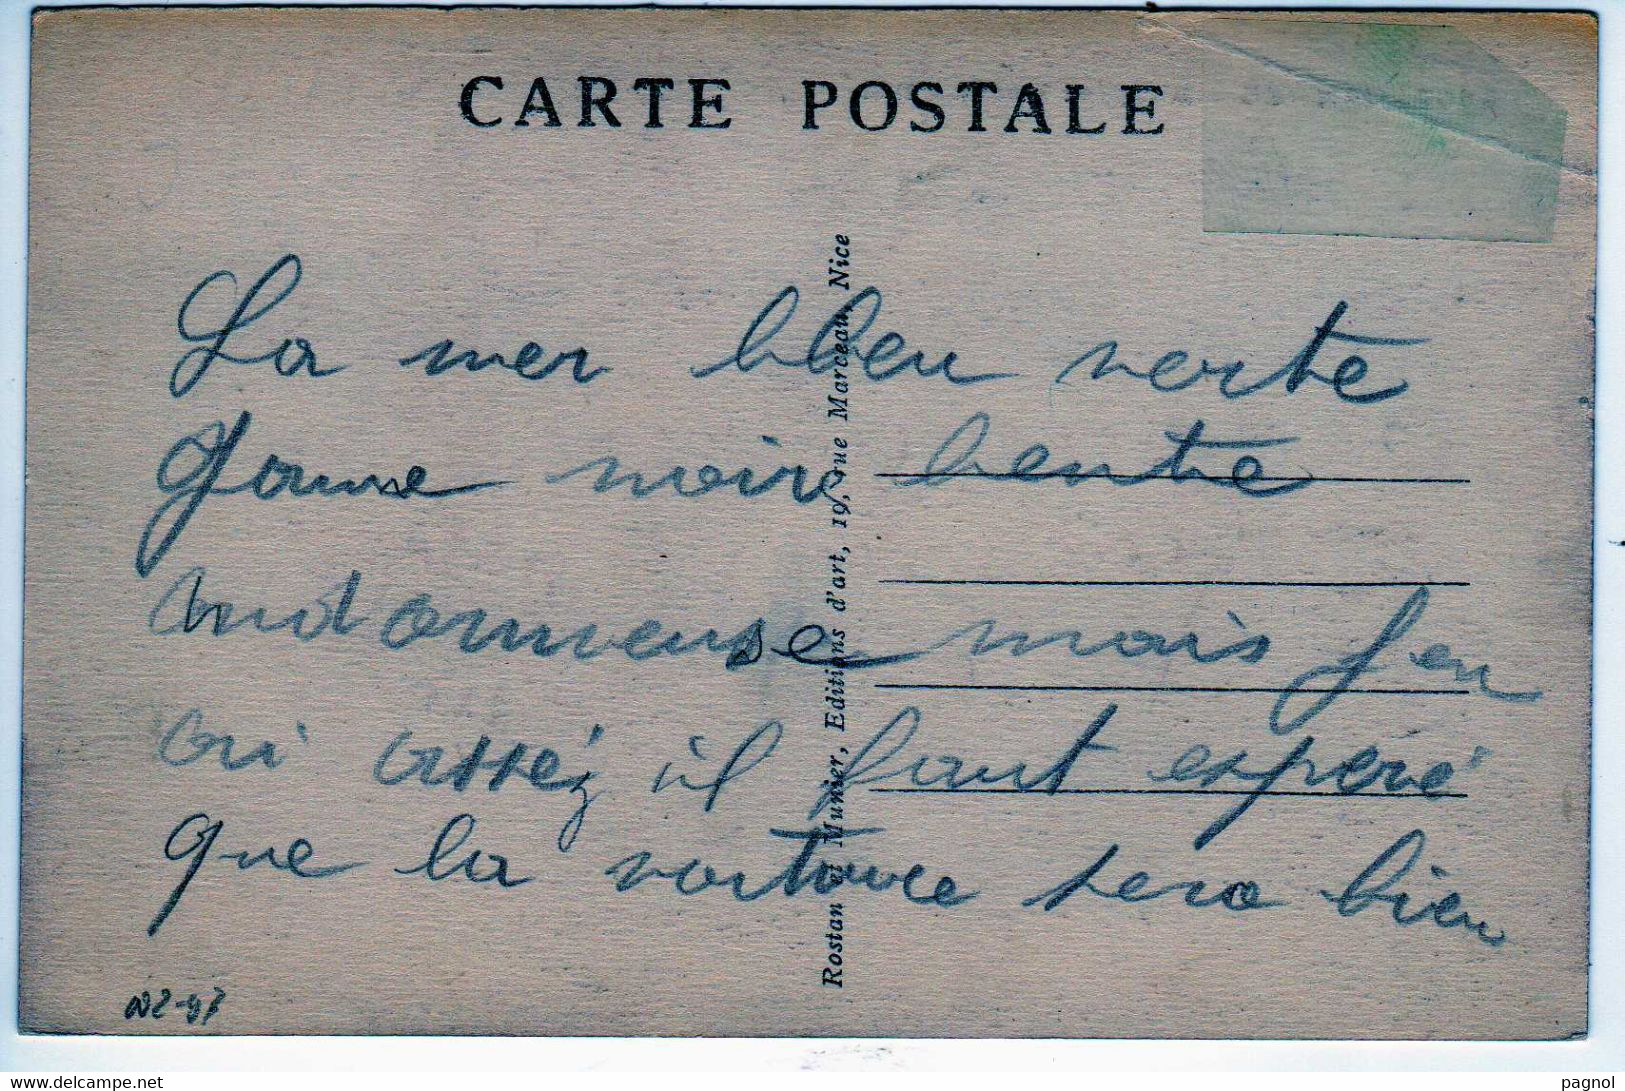 CARTE POSTALE
La mer bleu verte
Jaune noire lente
andormeuse mais j en
ai asséz il faut esperé
que la voiture sera bien
Rostan et Munier, Editions d'art, 19, rue Marceau, Nice
www.delcampe.net
pagnol